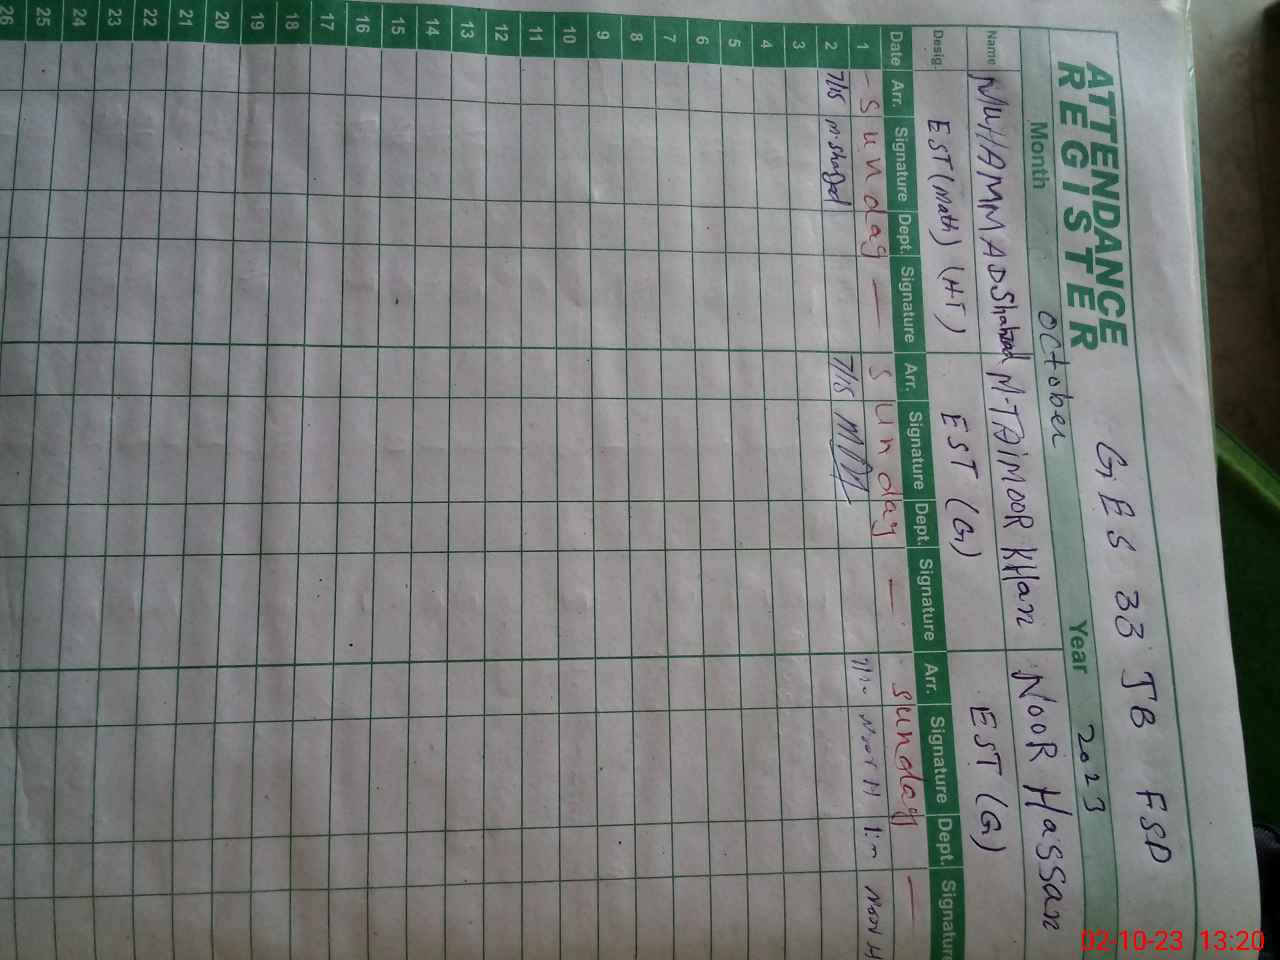 ATTENDANCE
REGISTER
GES 33 JB FSD
Month October Year 2023
Name MUHAMMAD Shahzad M-TAiMOOR KHan NooR Hassan
Desig. EST (Math) (H-T) EST (G) EST (G)
Date Arr. Signature Dept. Signature Arr. Signature Dept. Signature Arr. Signature Dept. Signature
1 - Sunday — Sunday — Sunday —
2 7/15 7/15 Noor H Noor H
3
4
5
6
7
8
9
10
11
12
13
14
15
16
17
18
19
20
21
22
23
24
25
26
02-10-23 13:20